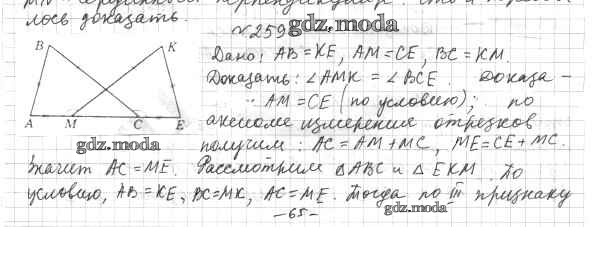 лось доказать.
№259
gdz.moda
Дано: AB = KE, AM = CE, BC = KM.
Доказать: ∠AMK = ∠BCE. Доказа-
AM = CE (по условию); по
аксиоме измерения отрезков
получим: AC = AM + MC, ME = CE + MC.
B
K
A
M
C
E
gdz.moda
Значит AC = ME. Рассмотрим △ABC и △EKM. По
условию, AB = KE, BC = MK, AC = ME. Тогда по III признаку
-65-
gdz.moda